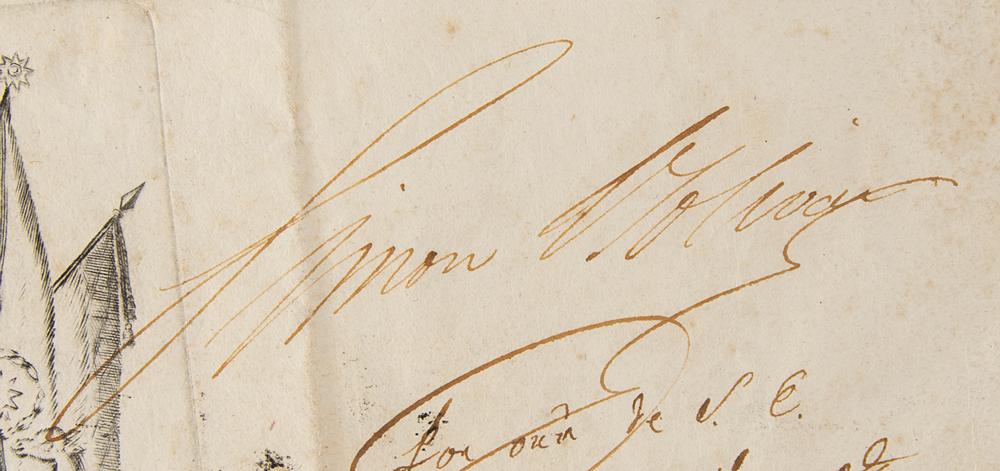 Simon Bolivar
Por orn de S. E.